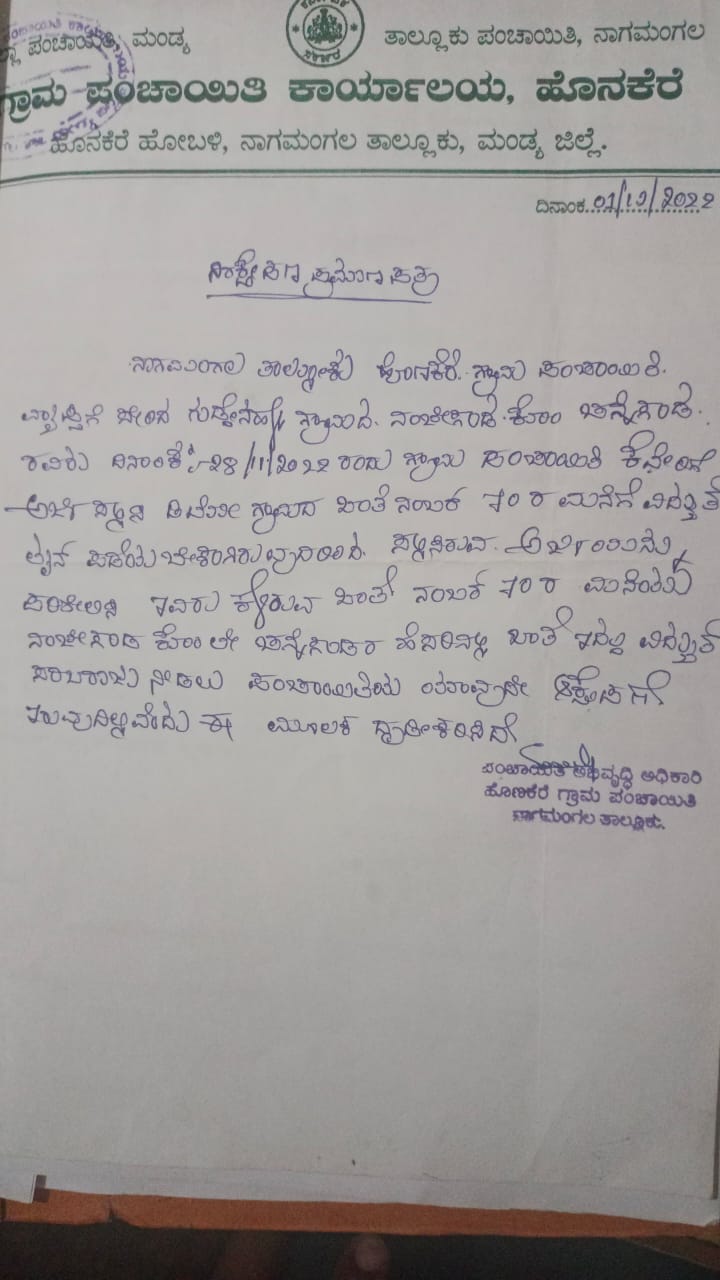 ಪಂಚಾಯಿತಿ, ಮಂಡ್ಯ
ತಾಲ್ಲೂಕು ಪಂಚಾಯಿತಿ, ನಾಗಮಂಗಲ
ಗ್ರಾಮ ಪಂಚಾಯಿತಿ ಕಾರ್ಯಾಲಯ, ಹೊನಕೆರೆ
ಹೊನಕೆರೆ ಹೋಬಳಿ, ನಾಗಮಂಗಲ ತಾಲ್ಲೂಕು, ಮಂಡ್ಯ ಜಿಲ್ಲೆ.
ದಿನಾಂಕ 01/12/2022
ಪ್ರಮಾಣ ಪತ್ರ
ನಾಗಮಂಗಲ ತಾಲ್ಲೋಕು ಹೊಣಕೆರೆ ಗ್ರಾಮ ಪಂಚಾಯಿತಿ
ವ್ಯಾಪ್ತಿಗೆ ಸೇರಿದ ಗ್ರಾಮದ ನಂಜೇಗೌಡ ಕೋಂ ಚನ್ನೇಗೌಡ
ರವರು ದಿನಾಂಕ:-28/11/2022 ರಂದು ಗ್ರಾಮ ಪಂಚಾಯಿತಿ ಕಛೇರಿಗೆ
ಅರ್ಜಿ ಸಲ್ಲಿಸಿ ಗ್ರಾಮದ ಖಾತೆ ನಂಬರ್ 70 ರ ಮನೆಗೆ ವಿದ್ಯುತ್
ಲೈನ್ ಪಡೆಯ ಬೇಕಾಗಿರುವುದರಿಂದ ಸಲ್ಲಿಸಿರುವ ಅರ್ಜಿಯನ್ನು
ಪರಿಶೀಲಿಸಿ ಇವರು ಕೋರುವ ಖಾತೆ ನಂಬರ್ 70 ರ ಮನೆಯು
ನಂಜೇಗೌಡ ಕೋಂ ಲೇ ಚನ್ನೇಗೌಡರ ಹೆಸರಿನಲ್ಲಿ ಖಾತೆ ಇದ್ದು ವಿದ್ಯುತ್
ಸರಬರಾಜು ನೀಡಲು ಪಂಚಾಯಿತಿಯ ಯಾವುದೇ ಆಕ್ಷೇಪಣೆ
ಇರುವುದಿಲ್ಲವೆಂದು ಈ ಮೂಲಕ ದೃಢೀಕರಿಸಿದೆ
ಪಂಚಾಯಿತಿ ಅಭಿವೃದ್ಧಿ ಅಧಿಕಾರಿ
ಹೊಣಕೆರೆ ಗ್ರಾಮ ಪಂಚಾಯಿತಿ
ನಾಗಮಂಗಲ ತಾಲ್ಲೂಕು.